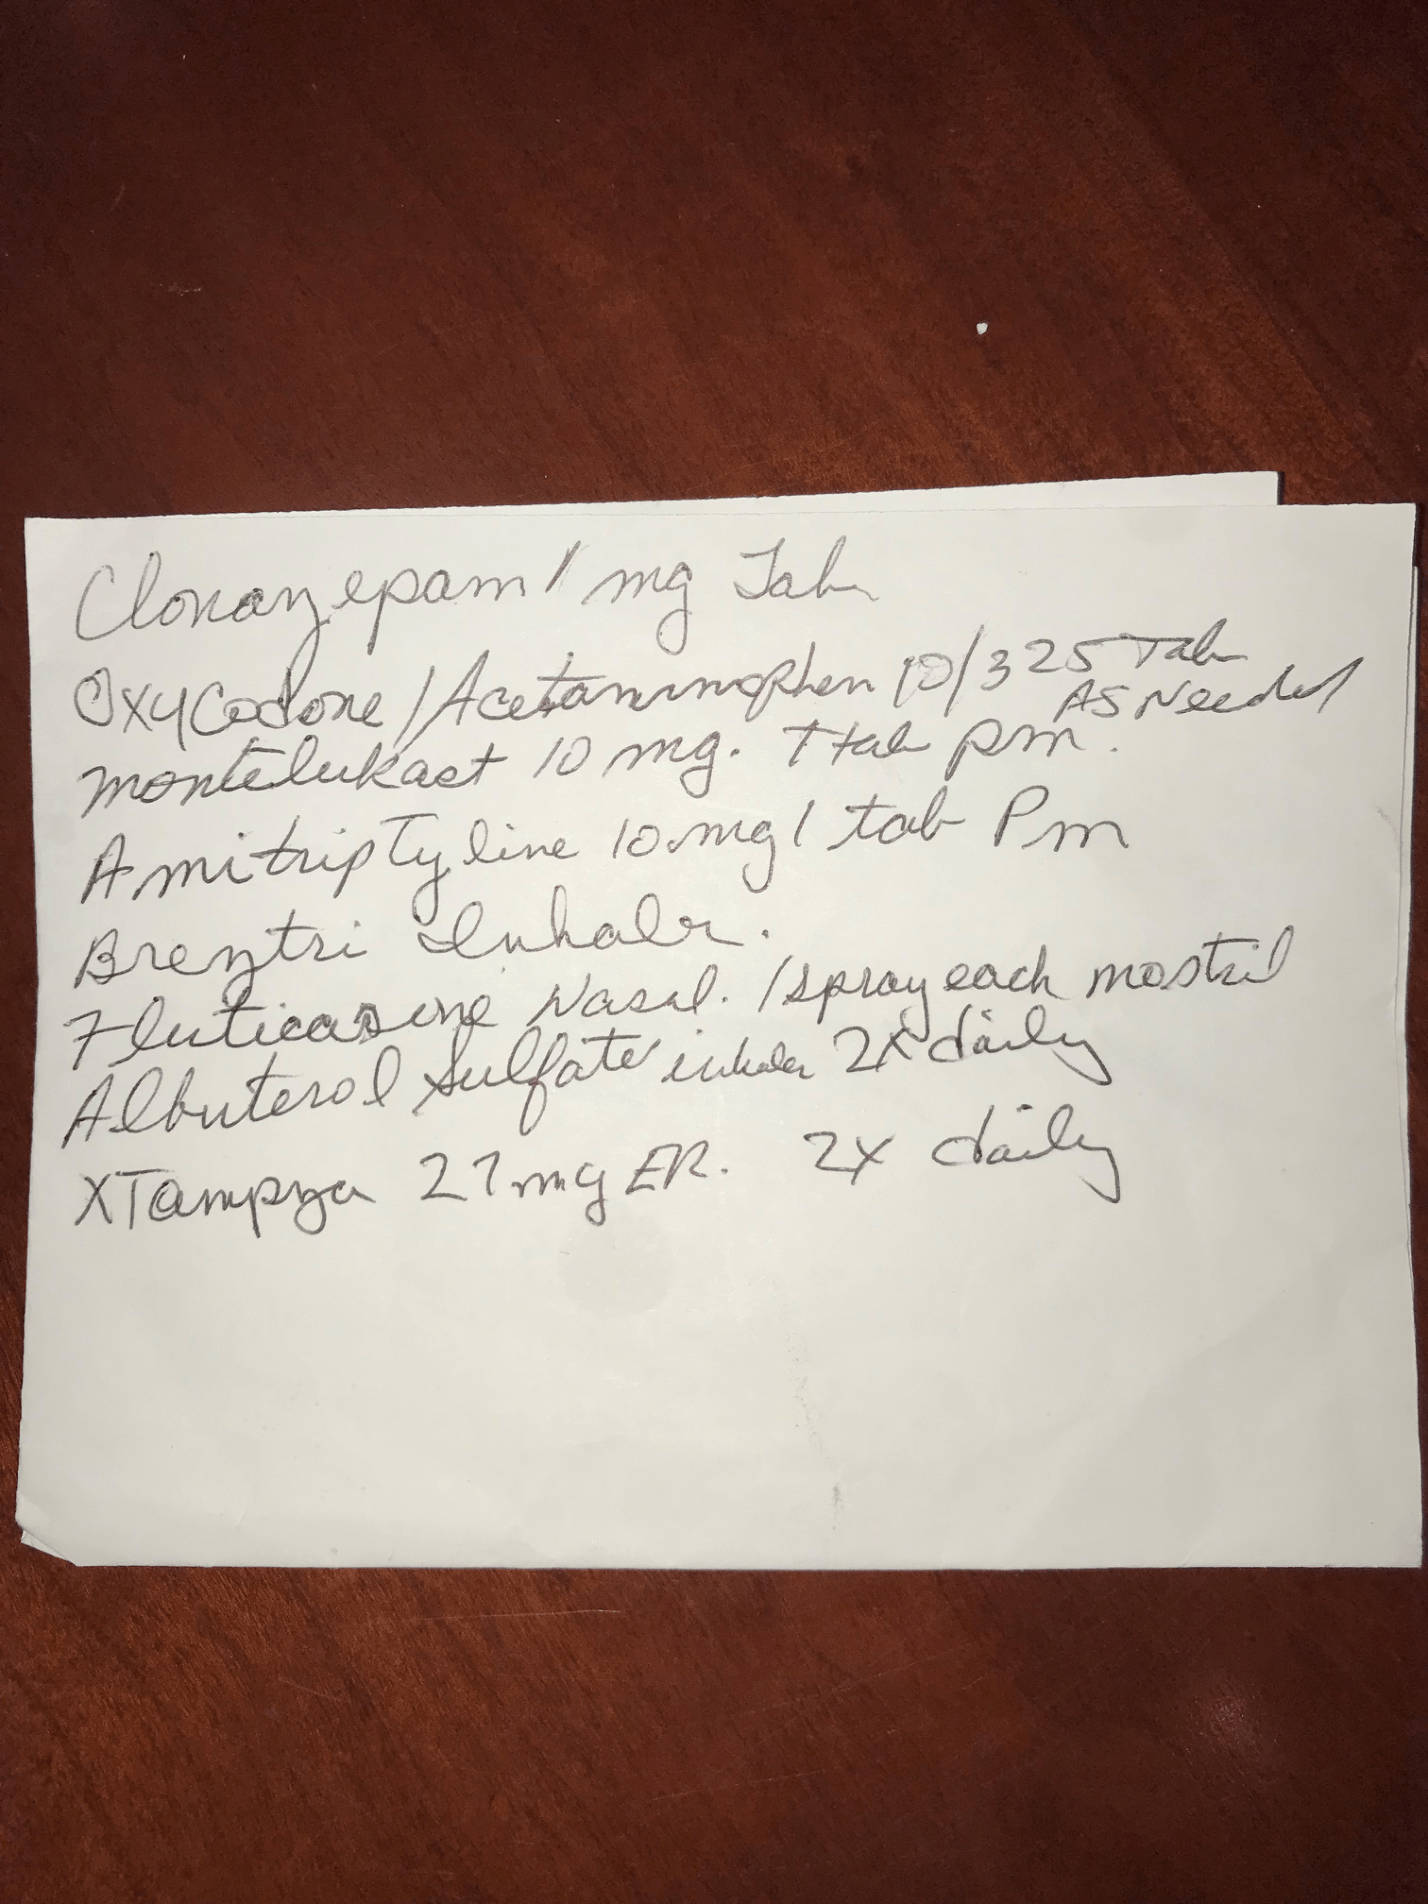 Clonazepam 1 mg Tab
Oxycodone/Acetaminophen 10/325 Tab
AS Needed
montelukast 10 mg. 1 tab pm.
Amitriptyline 10 mg 1 tab Pm
Breztri Inhaler.
Fluticasone Nasal. 1 spray each nostril
Albuterol Sulfate inhaler 2x daily
XTampza 27 mg ER. 2x daily